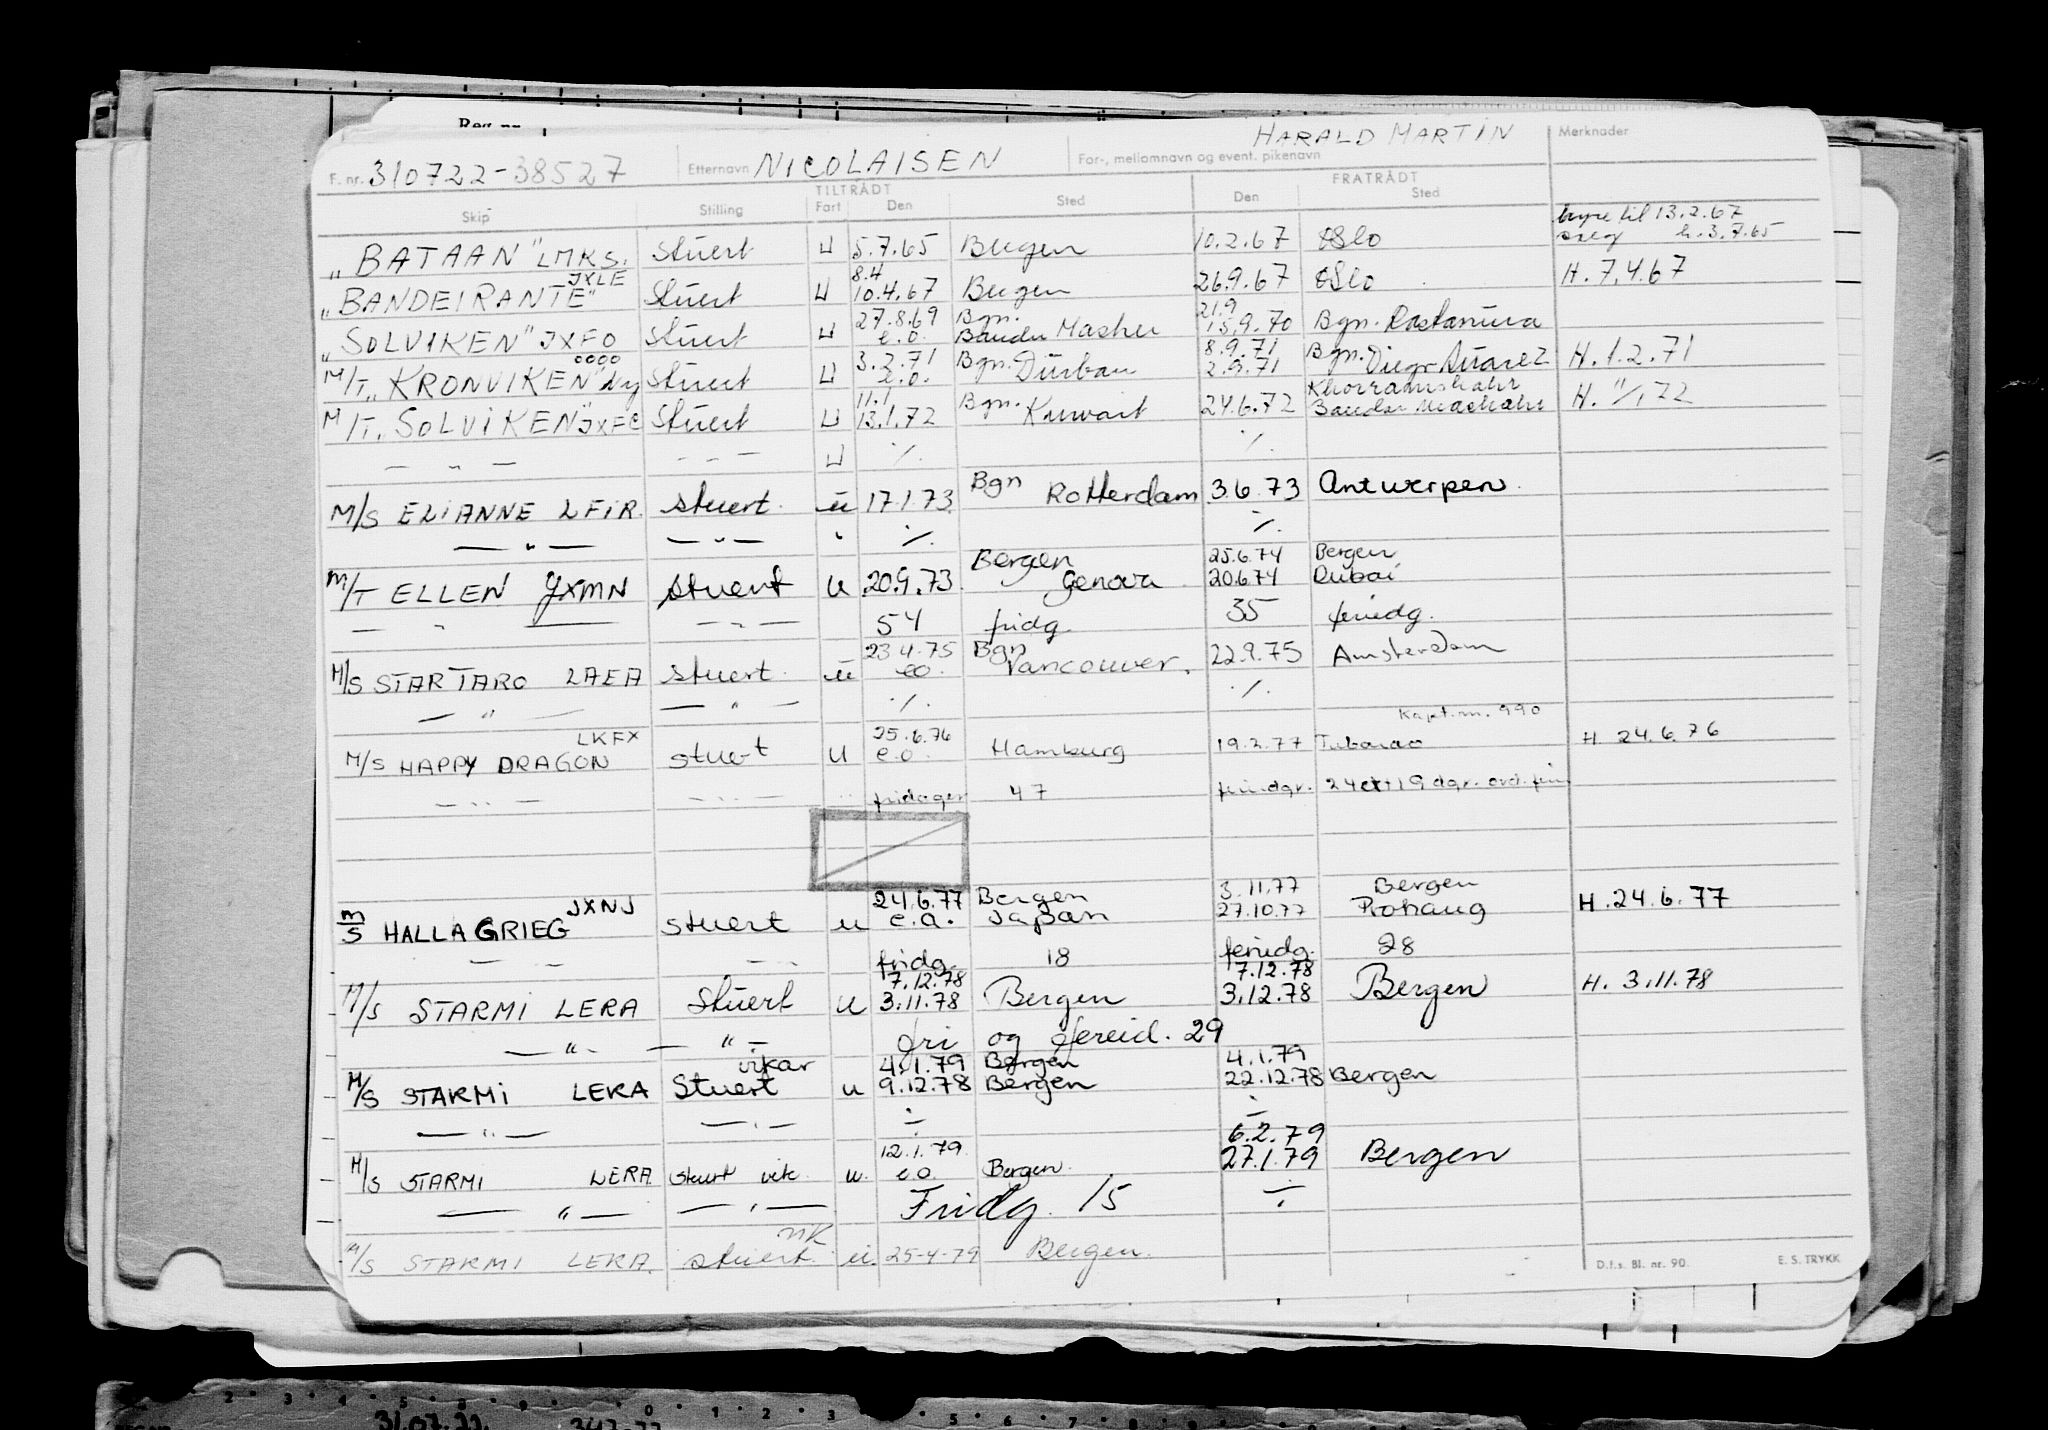 Reg.nr.
HARALD MARTIN Merknader
F. nr. 310722-38527 Etternavn NICOLAISEN For-, mellomnavn og event. pikenavn
TILTRÅDT FRATRÅDT
Skip Stilling Fart Den Sted Den Sted
hyre til 13.2.67
h. 3.7.65
"BATAAN" LMKS. Stuert U 5.7.65 Bergen 10.2.67 Oslo
JXLE 8.4
"BANDEIRANTE" Stuert U 10.4.67 Bergen 26.9.67 Oslo H. 7.4.67
27.8.69 Bgn. 21.9
"SOLVIKEN" JXFO Stuert U e.o. Bandar Mashur 15.9.70 Bgn. Rastanura
oooo 3.2.71 Bgn. 8.9.71
M/T "KRONVIKEN" Ny Stuert U e.o. Durban 2.9.71 Bgn. Diego Suarez H. 1.2.71
11.1 Bgn. Khorramshahr
M/T. SOLVIKEN" JXFC Stuert U 13.1.72 Kuwait 24.6.72 Bandar Mashahr H. 11/1.72
— " — - - - U ./. ./.
M/S ELIANNE LFIR. stuert. u 17.1.73. Bgn Rotterdam 3.6.73 Antwerpen.
— " — — " — " ./. ./.
Bergen 25.6.74 Bergen
M/T ELLEN JXMN stuert u 20.9.73. Genova 20.6.74 Dubai
— " — — " — 54 fridg 35 feriedg.
23.4.75 Bgn
M/S STAR TARO LAEA stuert. u eo. Vancouver. 22.9.75 Amsterdam
— " — — " — ./. ./.
Kapt.m. 990
LKFX 25.6.76
M/S HAPPY DRAGON stuert u e.o. Hamburg 19.2.77 Tubarao H. 24.6.76
— " — — " — " fridager 47 feriedgr. 24 19 dgr. ord. feri
JXNJ 24.6.77 Bergen 3.11.77 Bergen
m/s HALLA GRIEG stuert u e.o. Japan 27.10.77 H. 24.6.77
— — — — fridg. 18 feriedg. 28
7.12.78 7.12.78
M/S STARMI LERA Stuert u 3.11.78 Bergen 3.12.78 Bergen H. 3.11.78
— " — — " — fri og fereid. 29
vikar 4.1.79 Bergen 4.1.79
M/S STARMI LERA Stuert u 9.12.78 Bergen 22.12.78 Bergen
— " — — " — ÷ ÷
12.1.79 6.2.79
M/S STARMI LERA stuert vik. u. e.o. Bergen. 27.1.79 Bergen
— " — — " — Fridg. 15 ÷
vik
M/S STARMI LERA. stuert. u. 25-4-79 Bergen.
D.f.s. Bl. nr. 90. E. S. TRYKK